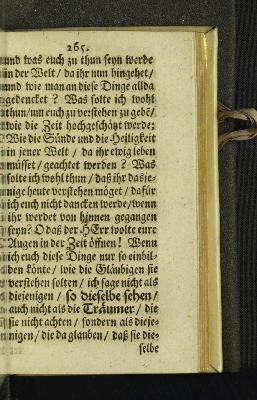 265.
und was euch zu thun seyn werde
in der Welt / da ihr nun hingehet /
und wie man an diese Dinge allda
gedencket ? Was solte ich wohl
thun / um euch zu verstehen zu gebē /
wie die Zeit hochgeschätzt werde:
Wie die Sünde und die Heiligkeit
in jener Welt / da ihr ewig leben
müsset / geachtet werden ? Was
solte ich wohl thun / daß ihr dasje-
nige heute verstehen möget / dafür
ich euch nicht dancken werde / wenn
ihr werdet von hinnen gegangen
seyn? O daß der HErr wolte eure
Augen in der Zeit öffnen ! Wenn
ich euch diese Dinge nur so einbil-
den könte / wie die Gläubigen sie
verstehen solten / ich sage nicht als
diejenigen / so dieselbe sehen /
auch nicht als die Träumer / die
sie nicht achten / sondern als dieje-
nigen / die da glauben / daß sie die-
selbe